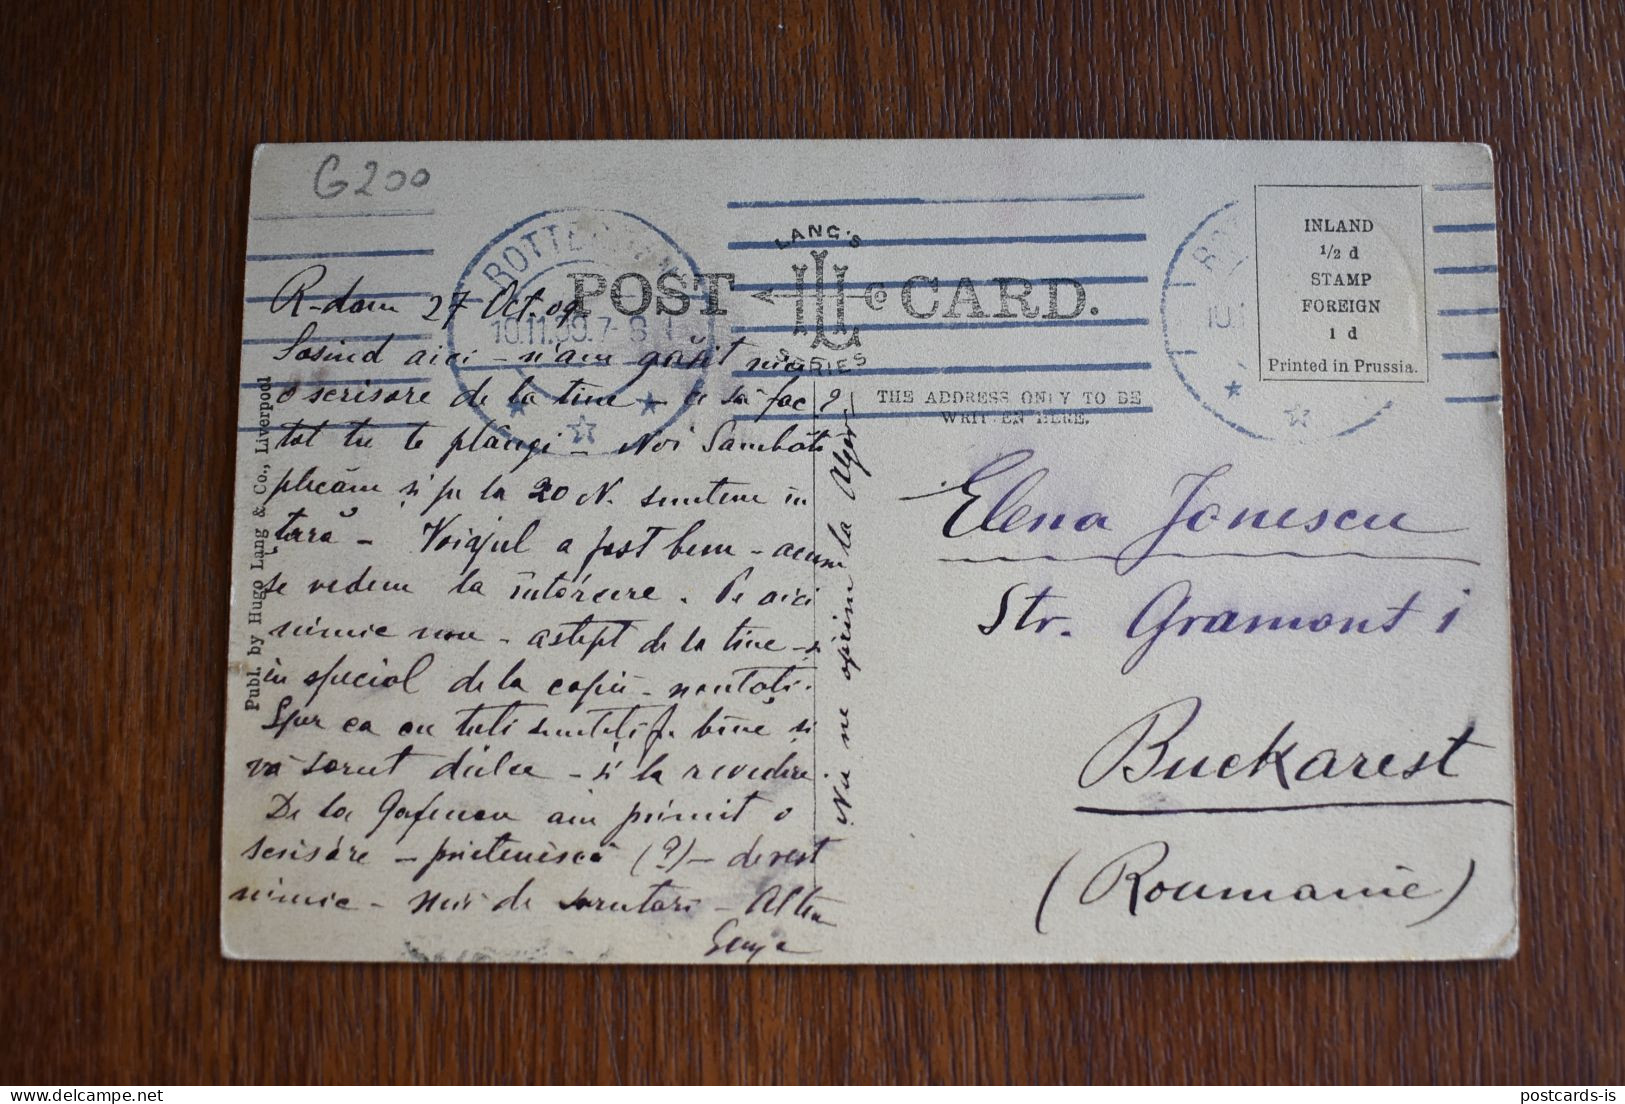 G200
ROTTERDAM
10.11.09.7-8
LANG'S
SERIES
POST CARD.
INLAND
1/2 d
STAMP
FOREIGN
1 d
Printed in Prussia.
THE ADDRESS ONLY TO BE
WRITTEN HERE.
Publ. by Hugo Lang & Co., Liverpool
R-dam 27 Oct. 09
Sosind aici - n'am găsit nici
o scrisore de la tine - ce să fac?
tot tu te plângi - Noi Sambătă
plecăm și pe la 20 N. suntem în
țară - Voiajul a fost bun - acum
se vedem la întórcere. Pe aici
nimic nou - aștept de la tine - și
in special de la copii - noutăți.
Sper ca cu toti sunteti f. bine și
vă sarut dulce - și la revedere.
De la Gafencu am primit o
scrisóre - prietenéscă (?) - de rest
nimic - de sarutari -
Nu ne oprim la Alger -
Elena Jonescu
Str. Gramont 1
Buckarest
(Roumanie)
postcards-is